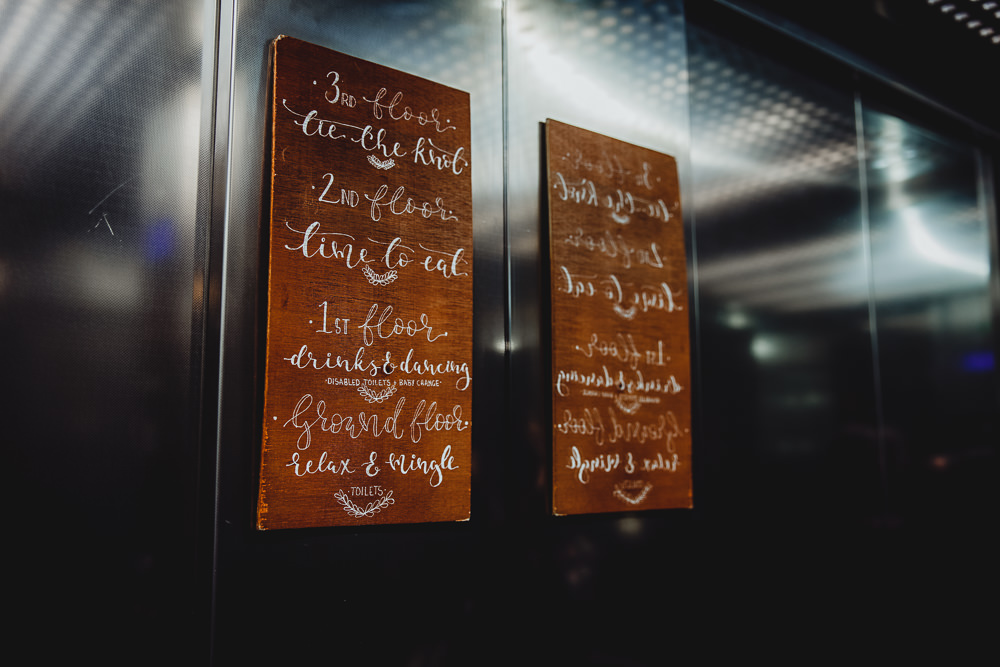 · 3RD floor ·
tie the knot
2ND floor
time to eat
1ST floor
drinks & dancing
· DISABLED TOILETS + BABY CHANGE ·
· Ground floor ·
relax & mingle
· TOILETS ·